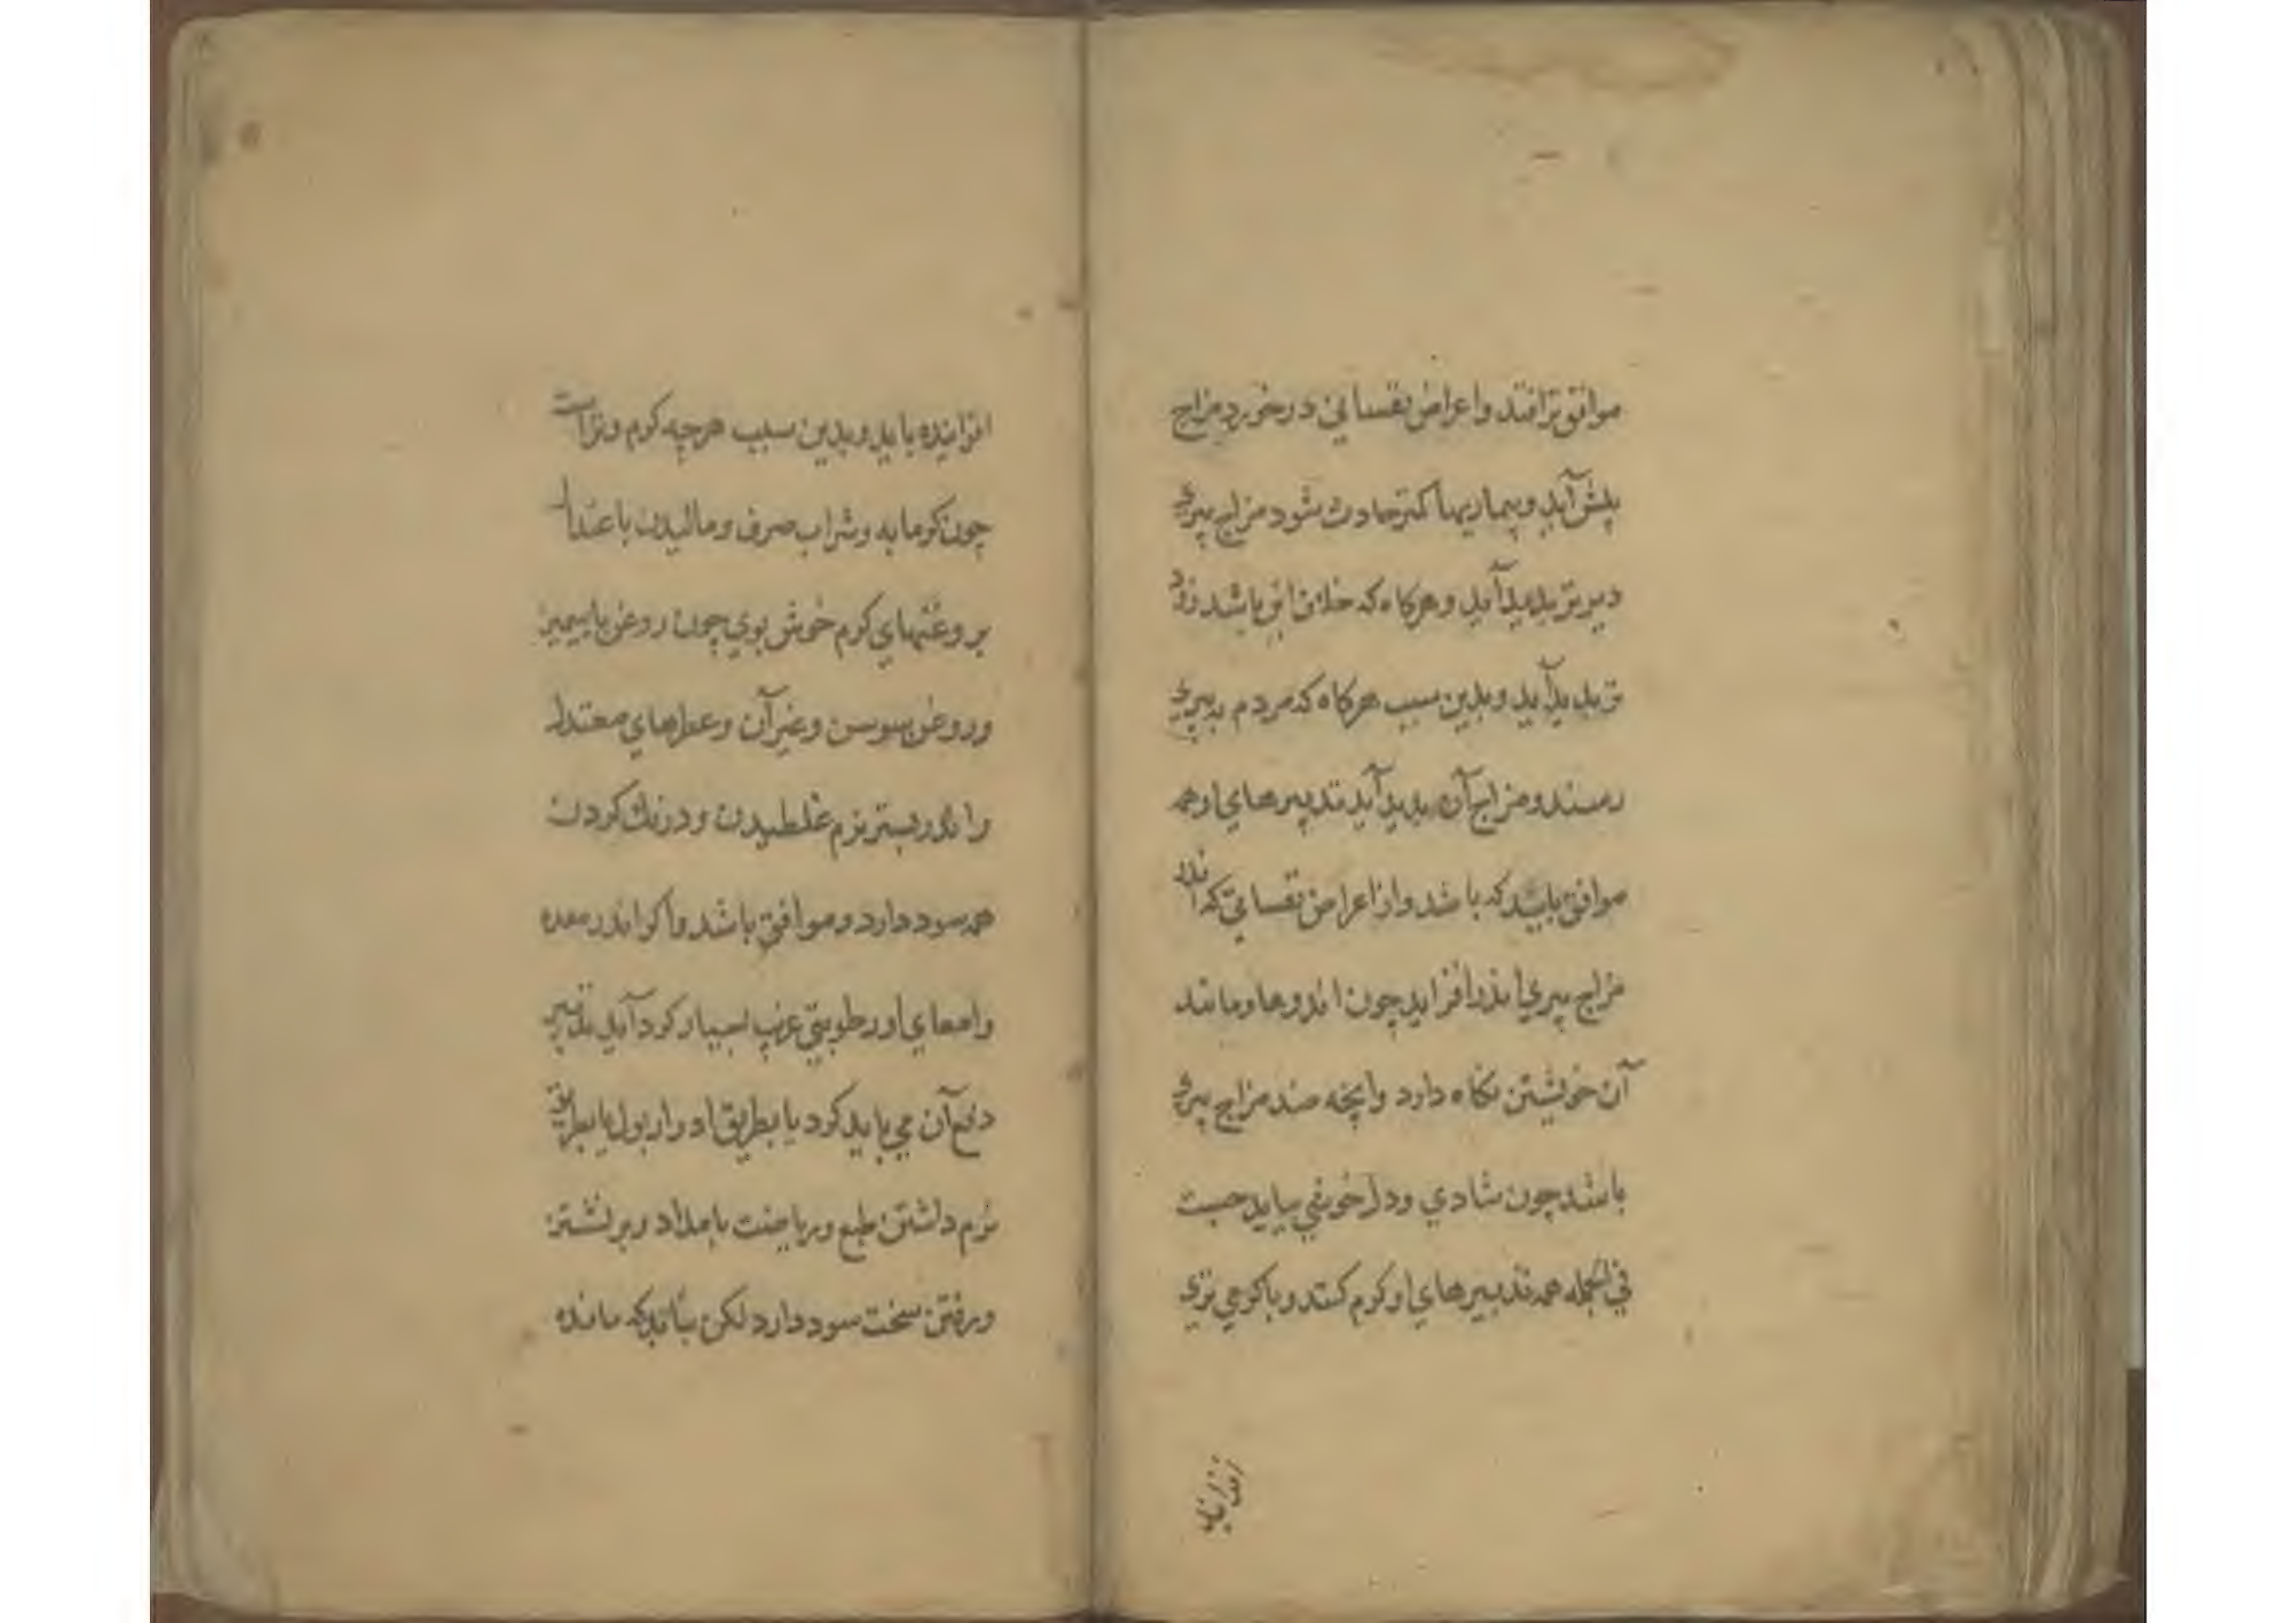 موافق تر افتد واعراض نفساني در خورد مزاج
پیش آید وبیماریها کمتر حادث شود مزاج پیری
دیرتر بدید آید و هرکاه که خلاف این باشد زود
تر بدید آید وبدین سبب هرکاه که مردم به پیری
رسند ومزاج آن بدید آید تدبیرهاي او همه
موافق باید که باشد واز اعراض نفساني که اندر
مزاج پیري اندر افزاید چون اندوها ومانند
آن خویشتن نکاه دارد وانچه ضد مزاج پیری
باشد چون شادي ودل خوشي بباید جست
في الجمله همه تدبیرهاي او کرم کنند وبا کرمي تري
افزاینده باید وبدین سبب هرچه کرم وتر است
چون کرمابه وشراب صرف ومالیدن باعتدال
بروغنهاي کرم خوش بوي چون روغن یاسمین
وروغن سوسن وغیر آن وعطرهاي معتدل
واندر بستر نرم غلطیدن ودرنك کردن
همه سود دارد وموافق باشد واکر اندر معده
وامعاي او رطوبتي غریب بسیار کرد آید تدبیر
دفع آن می باید کرد یا بطریق ادرار بول یا بطریق
نرم داشتن طبع وریاضت بامداد وبرنشستن
ورفتن سخت سود دارد لکن نباید که مانده